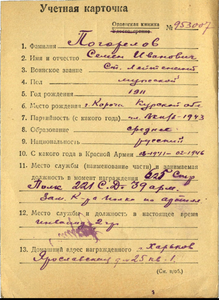 Учетная карточка
1. Фамилия Погорелов
2. Имя и отчество Семен Иванович
3. Воинское звание Ст. лейтенант
4. Пол мужской
5. Год рождения 1911
6. Место рождения г. Короча Курской обл.
7. Партийность (с какого года) 1943
8. Образование среднее
9. Национальность русский
10. С какого года в Красной Армии
11. Место службы (наименование части) и занимаемая
должность в момент награждения 625 Стр.
Полк 221 С.Д. 39 арм.
Зам. К-ра
12. Место службы и должность в настоящее время
13. Домашний адрес награжденного г. Харьков
Ярославская 25 кв. 1.
(См. н/об.)